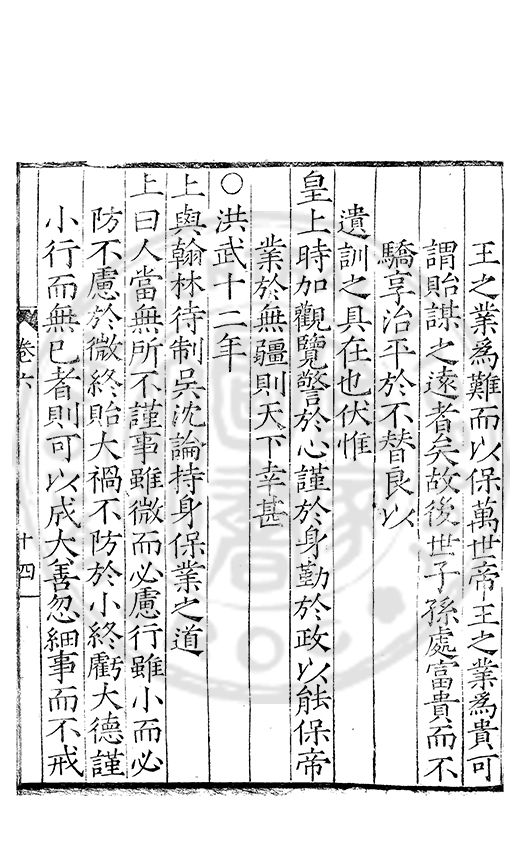 王之業爲難而以保萬世帝王之業爲貴可
謂貽謀之遠者矣故後世子孫處富貴而不
驕享治平於不替良以
遺訓之具在也伏惟
皇上時加觀覽警於心謹於身勤於政以能保帝
業於無疆則天下幸甚
○洪武十二年
上與翰林待制吳沈論持身保業之道
上曰人當無所不謹事雖微而必慮行雖小而必
防不慮於微終貽大禍不防於小終虧大德謹
小行而無已者則可以成大善忽細事而不戒
卷六
十四